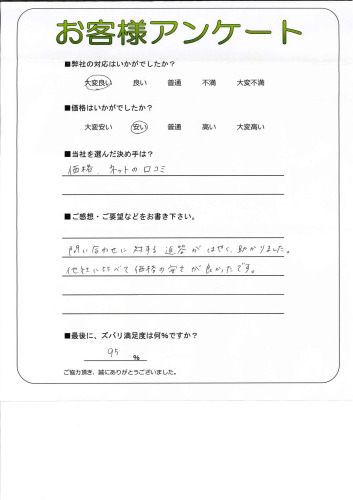 お客様アンケート
■弊社の対応はいかがでしたか?
大変良い 良い 普通 不満 大変不満
■価格はいかがでしたか?
大変安い 安い 普通 高い 大変高い
■当社を選んだ決め手は?
価格、ネットの口コミ
■ご感想・ご要望などをお書き下さい。
問い合わせに対する返答がはやく、助かりました。
他社に比べて価格の安さが良かったです。
■最後に、ズバリ満足度は何%ですか?
95 %
ご協力頂き、誠にありがとうございました。